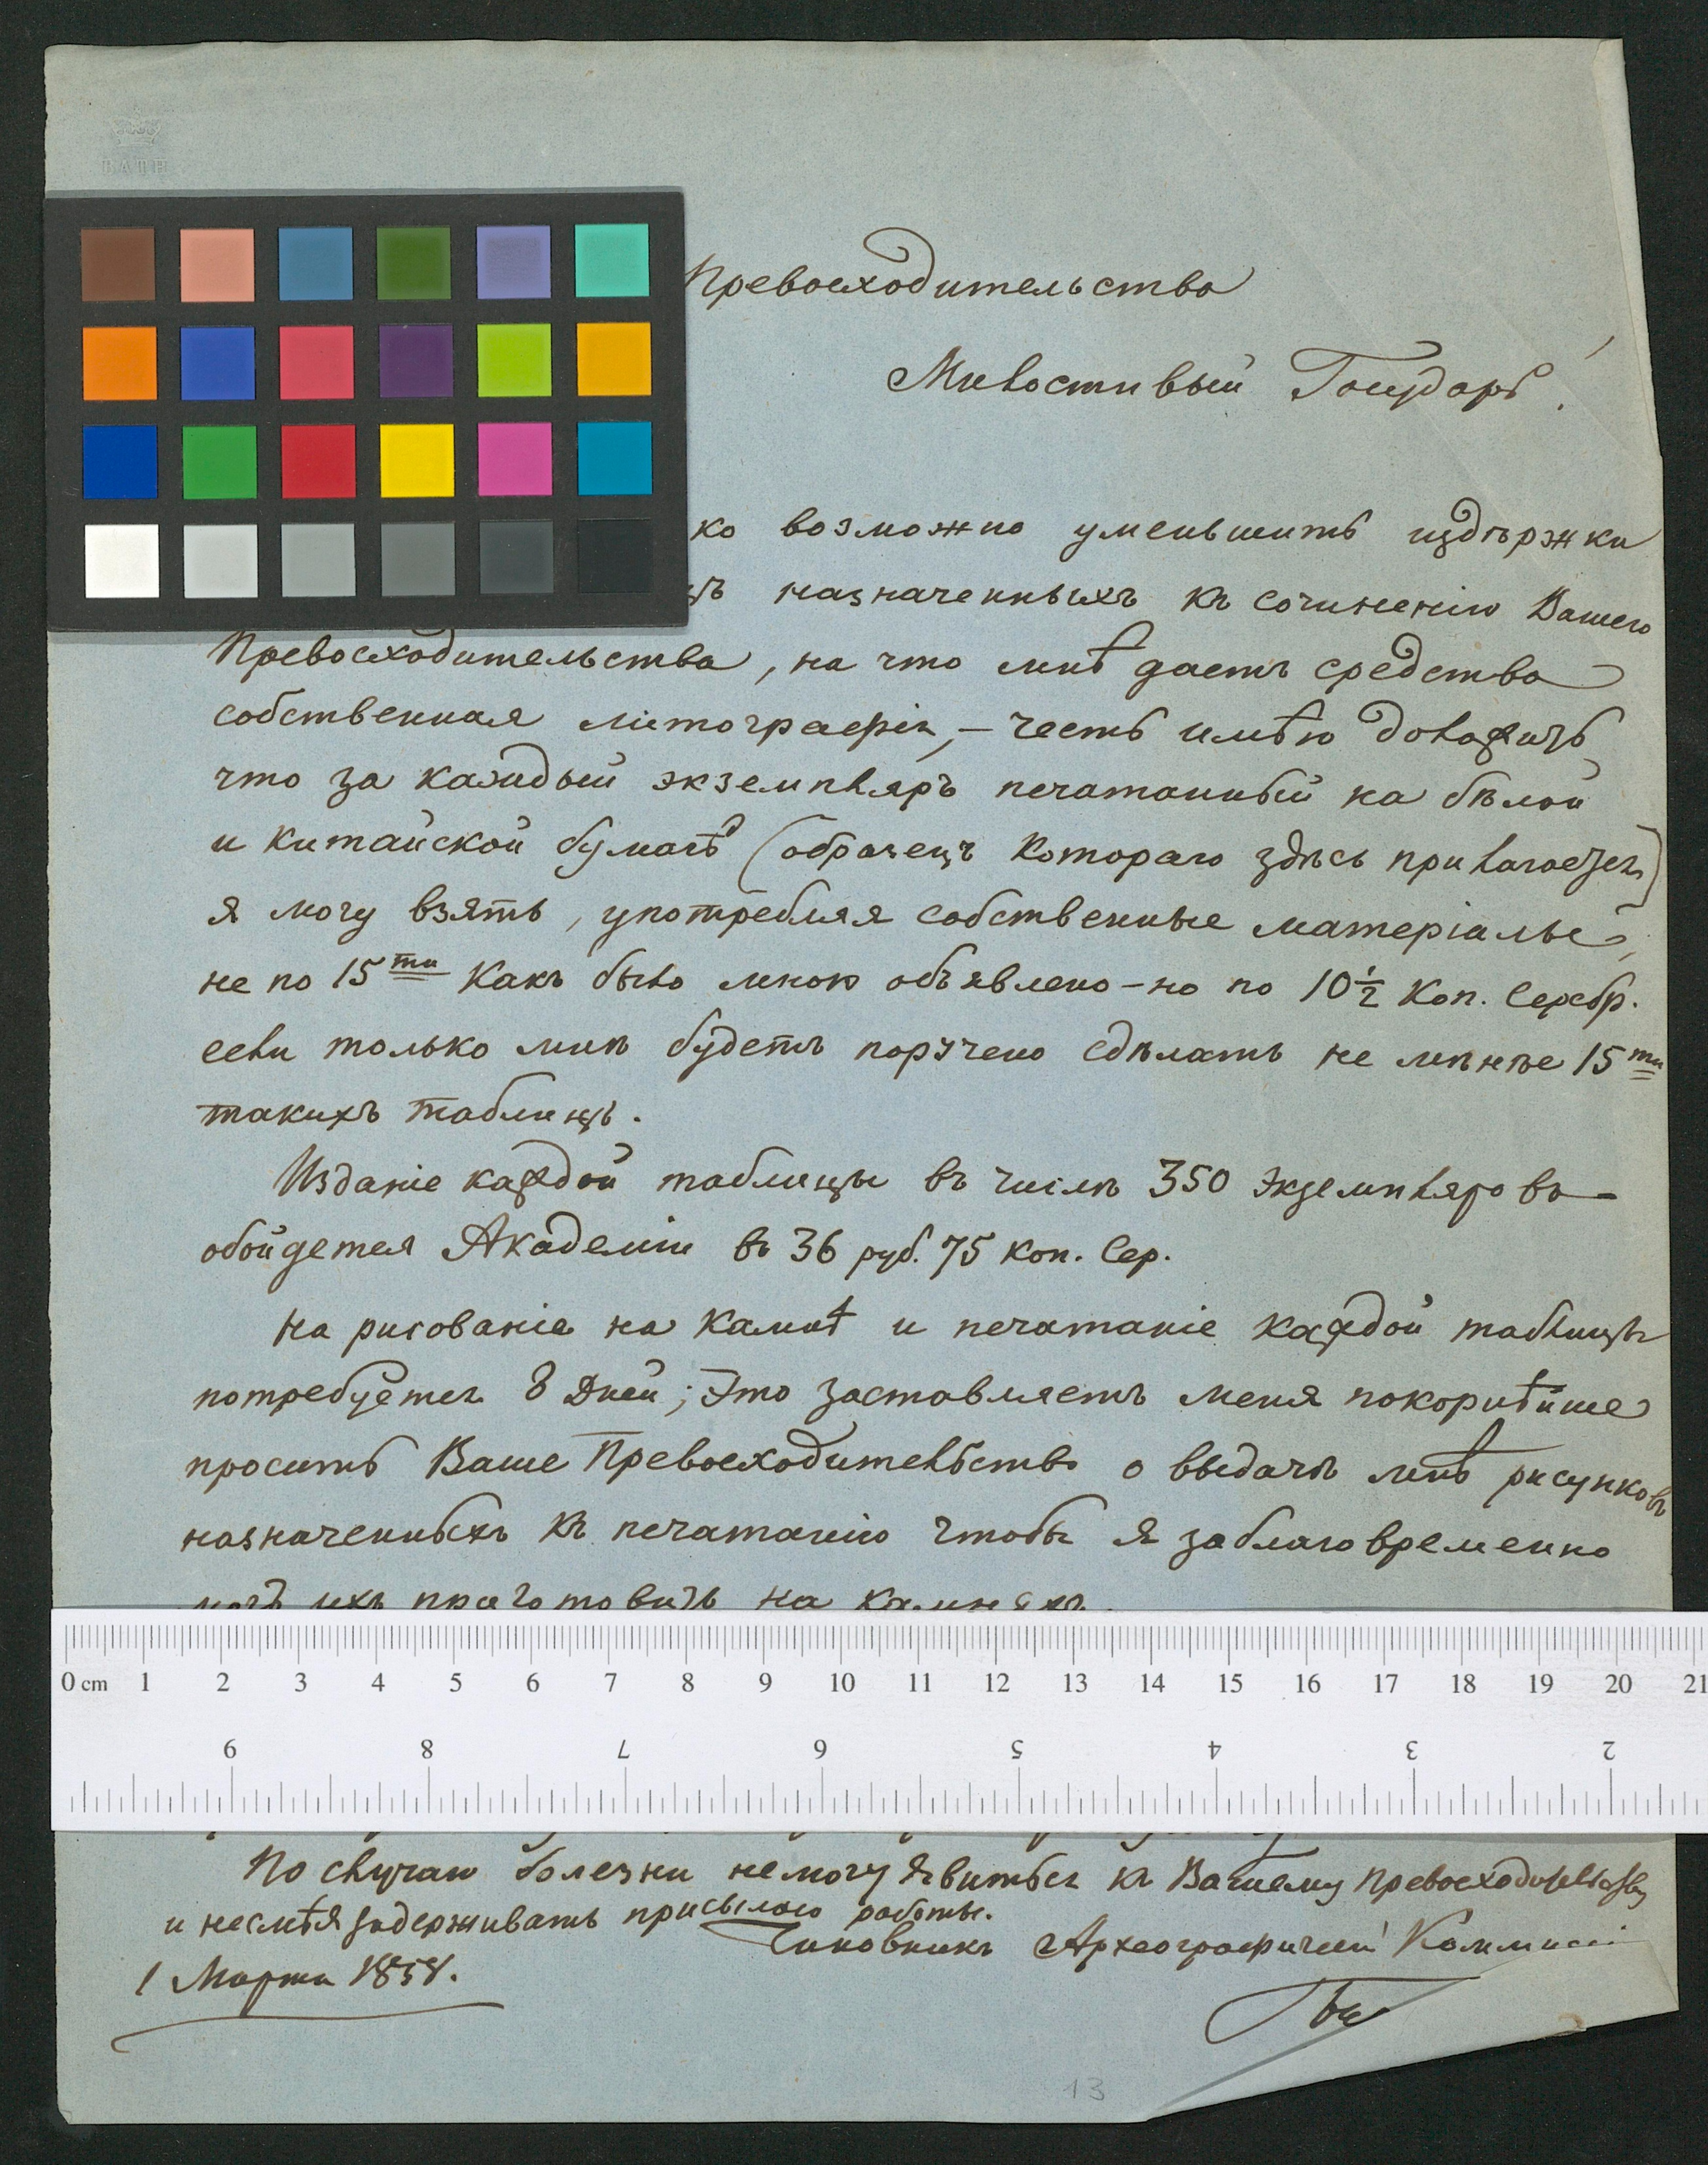 BATH
Превосходительства
Милостивый Государь!
ко возможно уменьшить издѣржки
назначенныхъ къ сочиненію Вашего
Превосходительства, на что мнѣ даетъ средства
собственная литографія, — честь имѣю доложить
что за каждый экземпляръ печатанный на бѣлой
и китайской бумагѣ (образецъ котораго здѣсь прилагается)
я могу взять, употребляя собственные матеріалы,
не по 15ти какъ было мною объявлено — но по 10½ Коп. Серебр.
если только мнѣ будетъ поручено сдѣлать не мѣнѣе 15ти
такихъ таблицъ.
Изданіе каждой таблицы въ числѣ 350 экземпляровъ —
обойдется Академіи въ 36 руб. 75 коп. Сер.
На рисованіе на камнѣ и печатаніе каждой таблицы
потребуется 8 дней; Это заставляетъ меня покорнѣйше
просить Ваше Превосходительство о выдачѣ мнѣ рисунковъ
назначенныхъ къ печатанію чтобы я заблаговременно
могъ ихъ приготовить на камняхъ.
0 cm 1 2 3 4 5 6 7 8 9 10 11 12 13 14 15 16 17 18 19 20 21
9 8 7 6 5 4 3 2
По случаю болезни немогу явиться къ Вашему Превосходительству
и несмѣя задерживать присылаю работы.
Чиновникъ Археографической Коммисіи
1 Марта 1858.
13